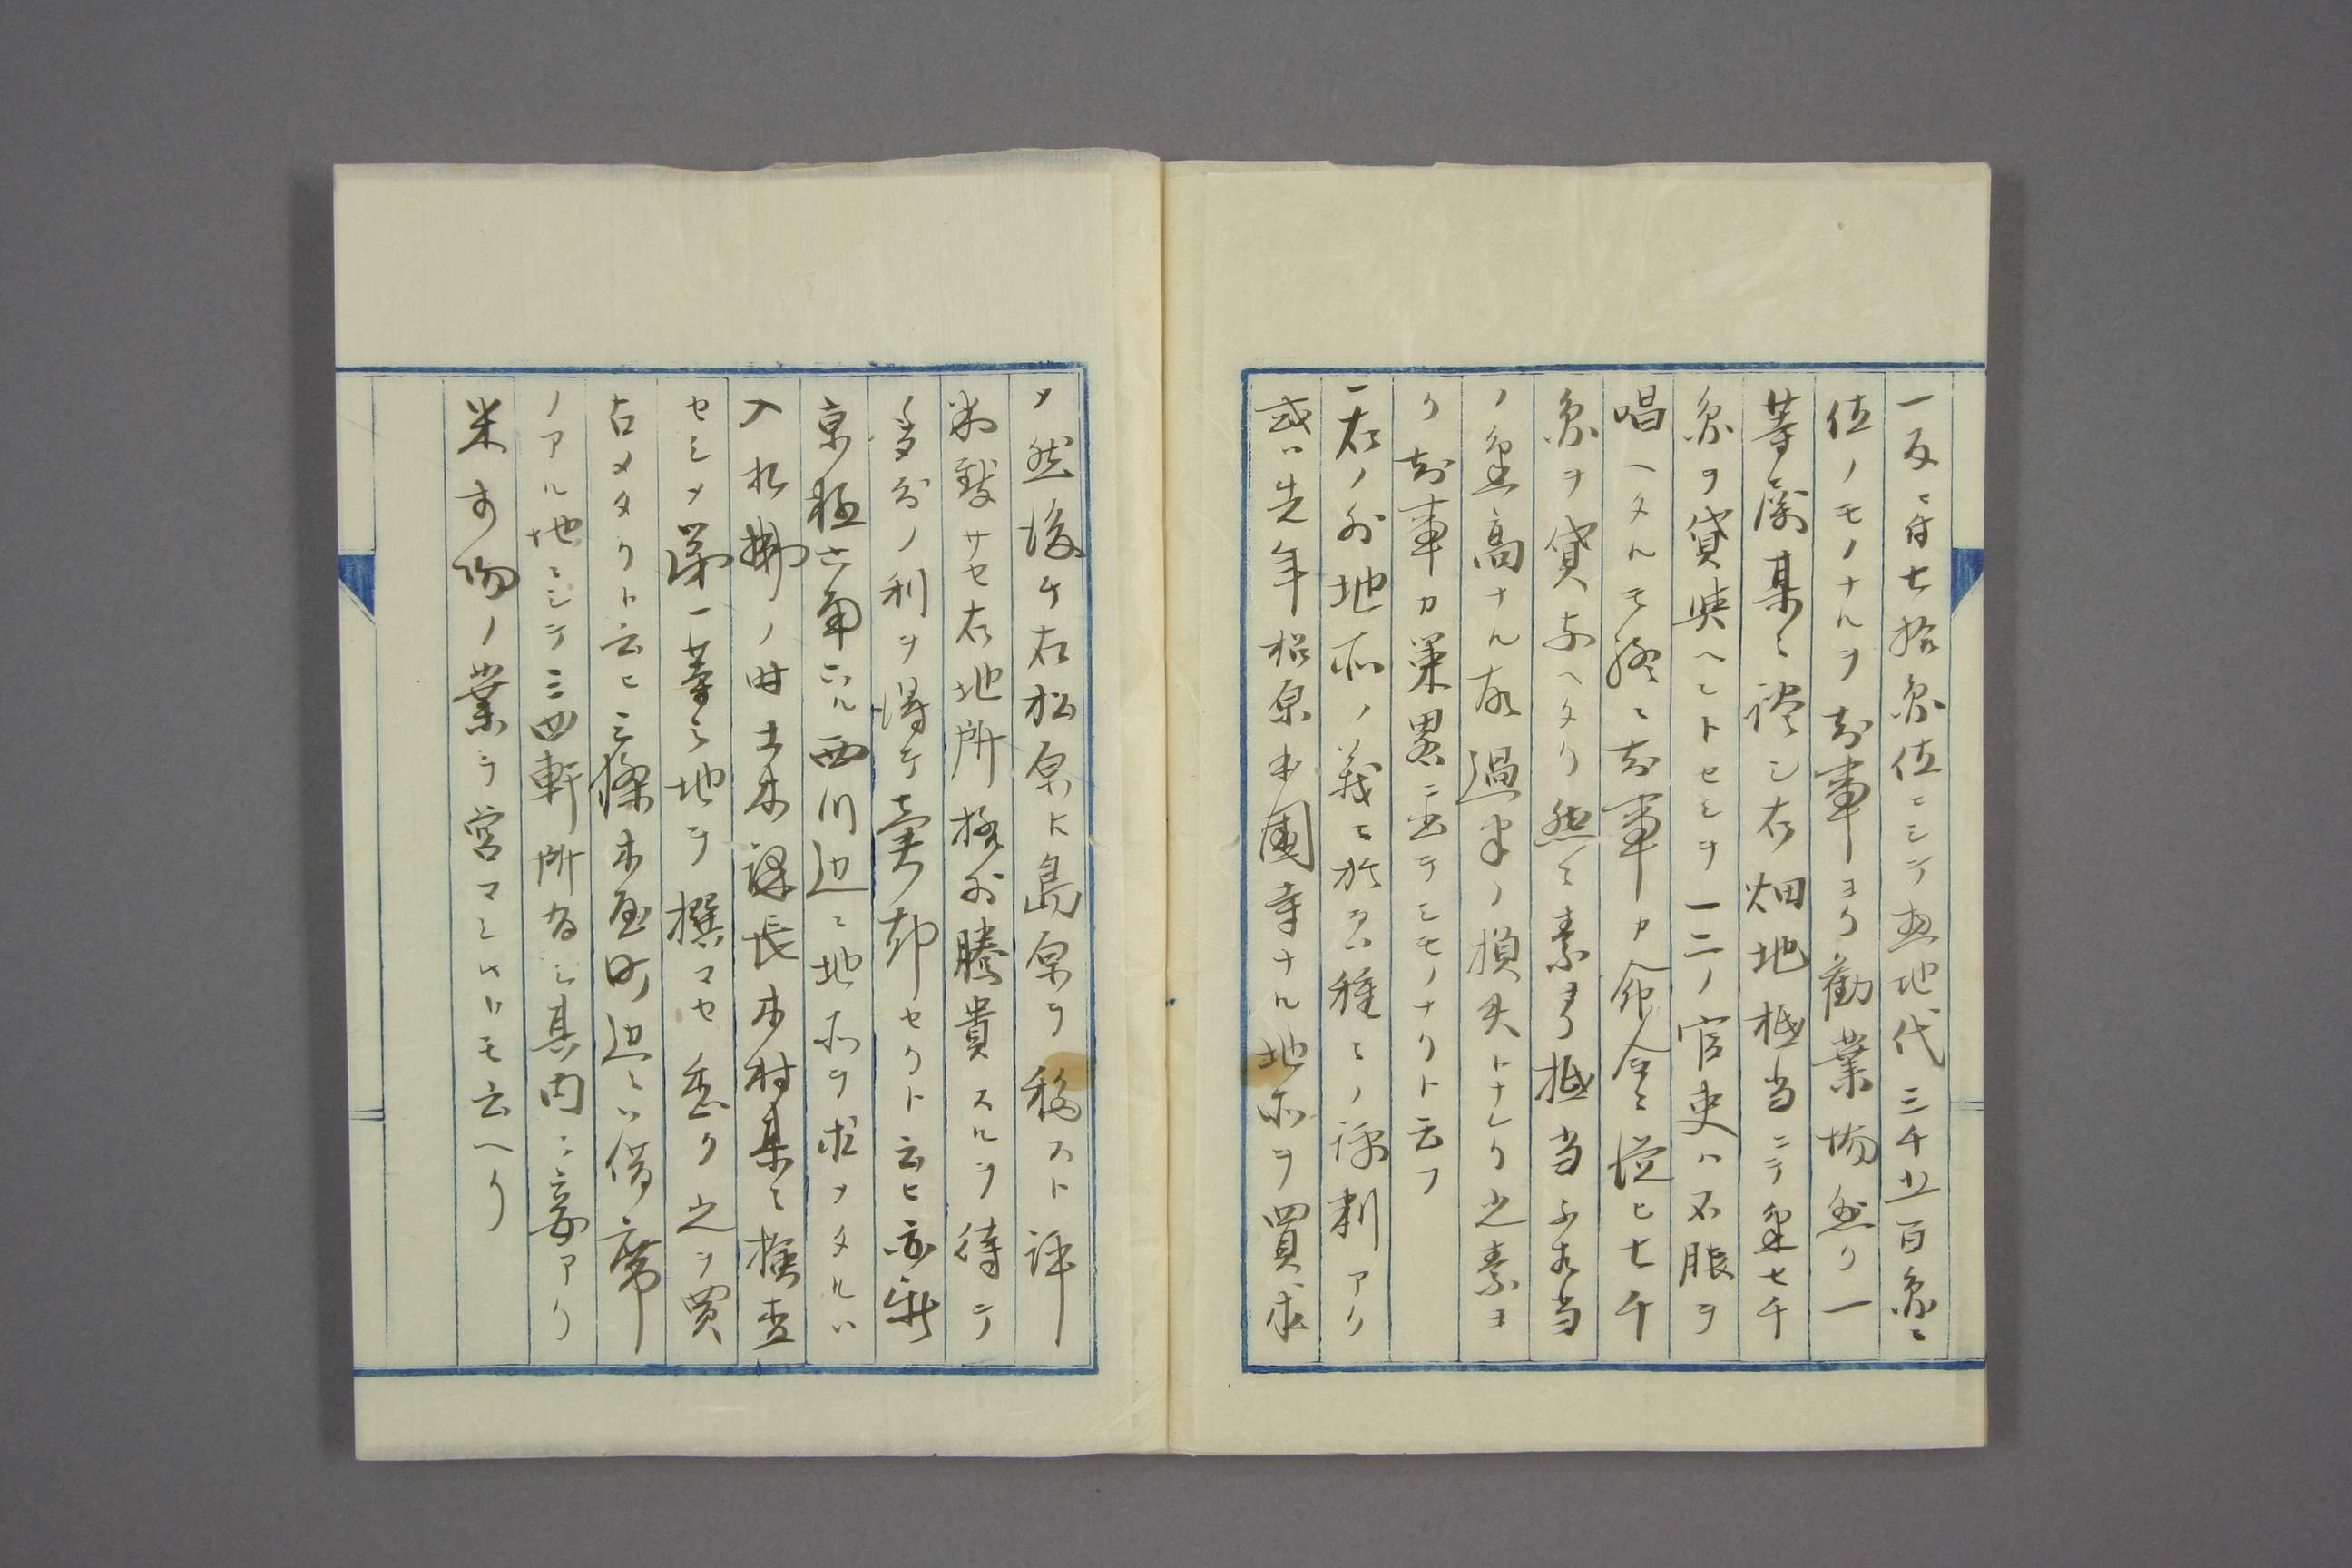 一反ニ付七拾円位ニシテ惣地代三千五百円ニ
位ノモノナルヲ知事ヨリ勧業場懸リ一
等属某ニ談シ右畑地抵当ニテ金七千
円ヲ貸与ヘントセシヲ一二ノ官吏ハ不服ヲ
唱ヘタルモ終ニ知事カ命令ニ従ヒ七千
円ヲ貸与ヘタリ然ルニ素ヨリ抵当不相当
ノ金高ナル故過半ノ損失トナレリ之素ヨ
リ知事カ策略ニ出テシモノナリト云フ
一右ノ外地所ノ義ニ於テハ種々ノ評判アリ
或ハ先年松原本圀寺ナル地所ヲ買求
メ然後チ右松原ヘ島原ヲ移スト評
判致サセ右地所格外騰貴スルヲ待テ
多分ノ利ヲ得テ売却セリト云ヒ亦新
京極六角下ル西川辺ニ地所ヲ求メタルハ
入札払ノ時土木課長木村某ニ検査
セシメ第一等ノ地ヲ撰マセ悉ク之ヲ買
占メタリト云ヒ三条木屋町辺ニハ借席
ノアル地ニシテ三四軒所有シ其内ニ妾アリ
米市場ノ業ヲ営マシムトモ云ヘリ